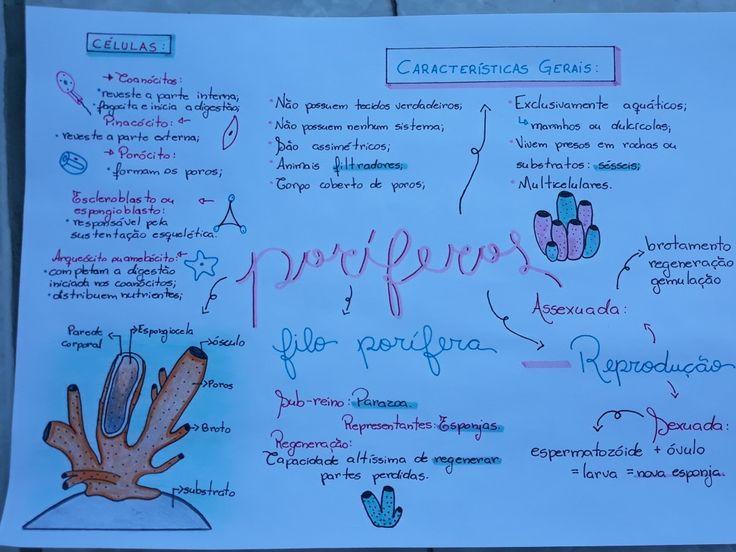 CÉLULAS:
→ Coanócitos:
• reveste a parte interna;
• fagocita e inicia a digestão;
Pinacócito: ←
• reveste a parte externa;
→ Porócito:
• formam os poros;
Escleroblasto ou ←
espongioblasto:
• responsável pela
sustentação esquelética.
Arqueócito ou amebócito: ←
• completam a digestão
iniciada nos coanócitos;
• distribuem nutrientes;
CARACTERÍSTICAS GERAIS:
• Não possuem tecidos verdadeiros;
• Não possuem nenhum sistema;
• São assimétricos;
• Animais filtradores;
• Corpo coberto de poros;
• Exclusivamente aquáticos;
↳ marinhos ou dulcícolas;
• Vivem presos em rochas ou
substratos: sésseis;
• Multicelulares.
poríferos
filo porífera
Sub-reino: Parazoa.
Representantes: Esponjas.
Regeneração:
Capacidade altíssima de regenerar
partes perdidas.
brotamento
regeneração
gemulação
Assexuada:
Reprodução
Sexuada:
espermatozóide + óvulo
= larva = nova esponja.
Parede
corporal
Espongiocela
ósculo
Poros
Broto
substrato